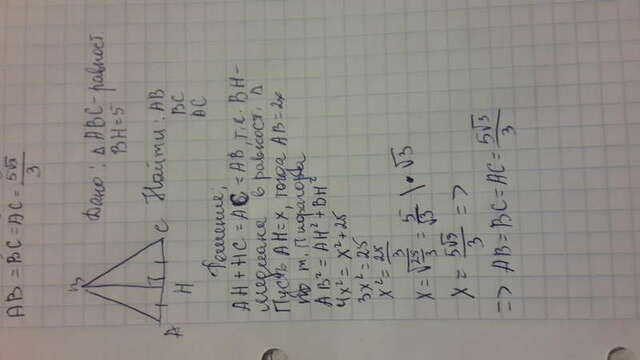 AB = BC = AC = 5√3/3
Дано: △ABC - равност
BH = 5
Найти: AB
BC
AC
B
A
H
C
Решение:
AH + HC = AC = AB, т.к BH -
медиана в равност. △
Пусть AH = x, тогда AB = 2x
по т. Пифагора
AB² = AH² + BH²
4x² = x² + 25
3x² = 25
x² = 25/3
x = √25/3 = 5/√3 | • √3
x = 5√3/3 =>
=> AB = BC = AC = 5√3/3